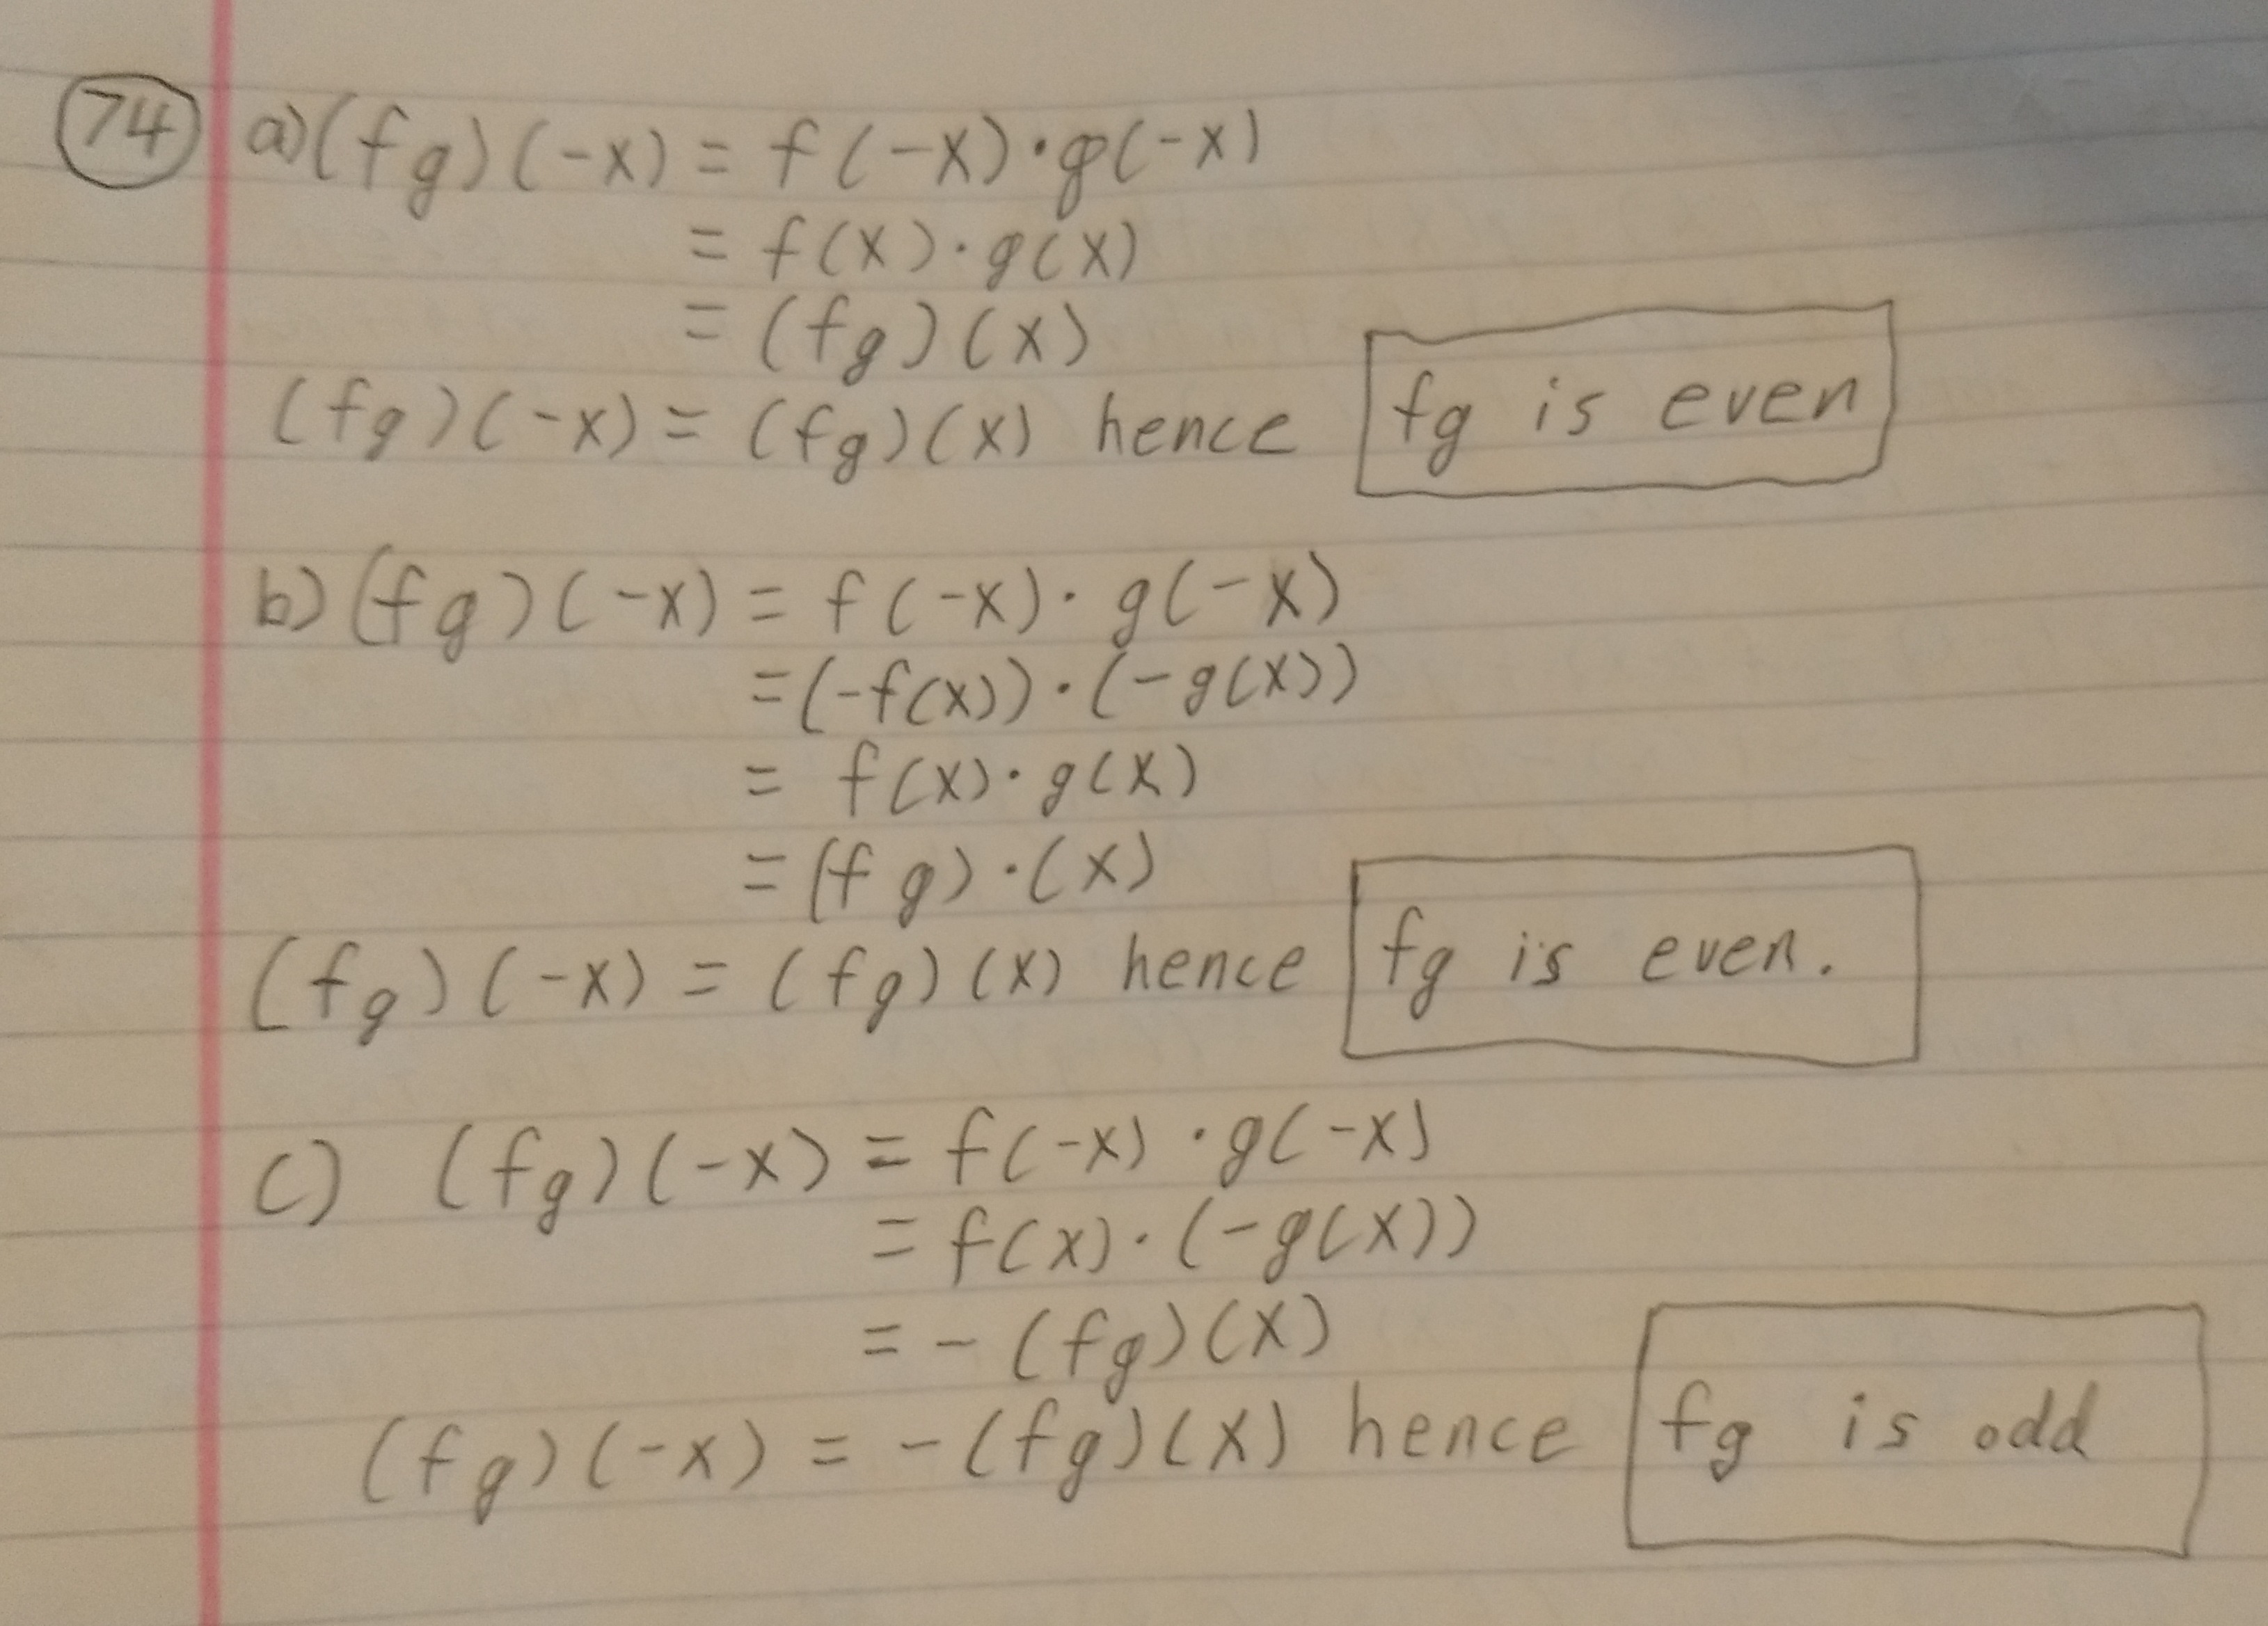 74 a) (fg)(-x) = f(-x)·g(-x)
= f(x)·g(x)
= (fg)(x)
(fg)(-x) = (fg)(x) hence fg is even
b) (fg)(-x) = f(-x)·g(-x)
= (-f(x))·(-g(x))
= f(x)·g(x)
= (fg)·(x)
(fg)(-x) = (fg)(x) hence fg is even.
c) (fg)(-x) = f(-x)·g(-x)
= f(x)·(-g(x))
= -(fg)(x)
(fg)(-x) = -(fg)(x) hence fg is odd